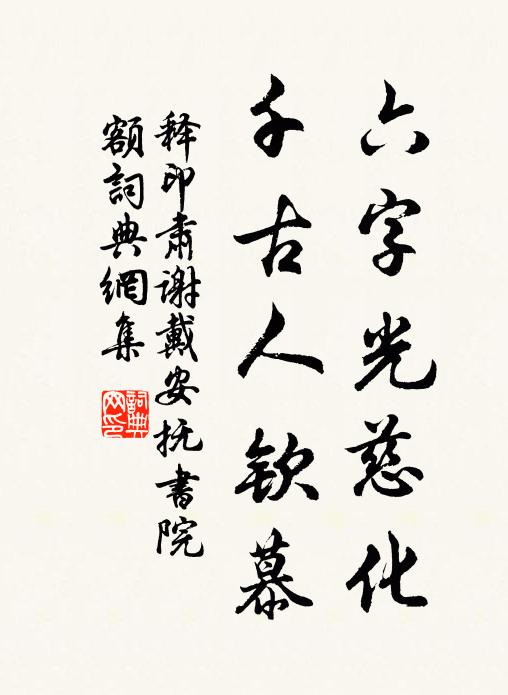 六字光慈化
千古人钦慕
释印肃谢戴安抚书院
額詞典網集
詞典网印